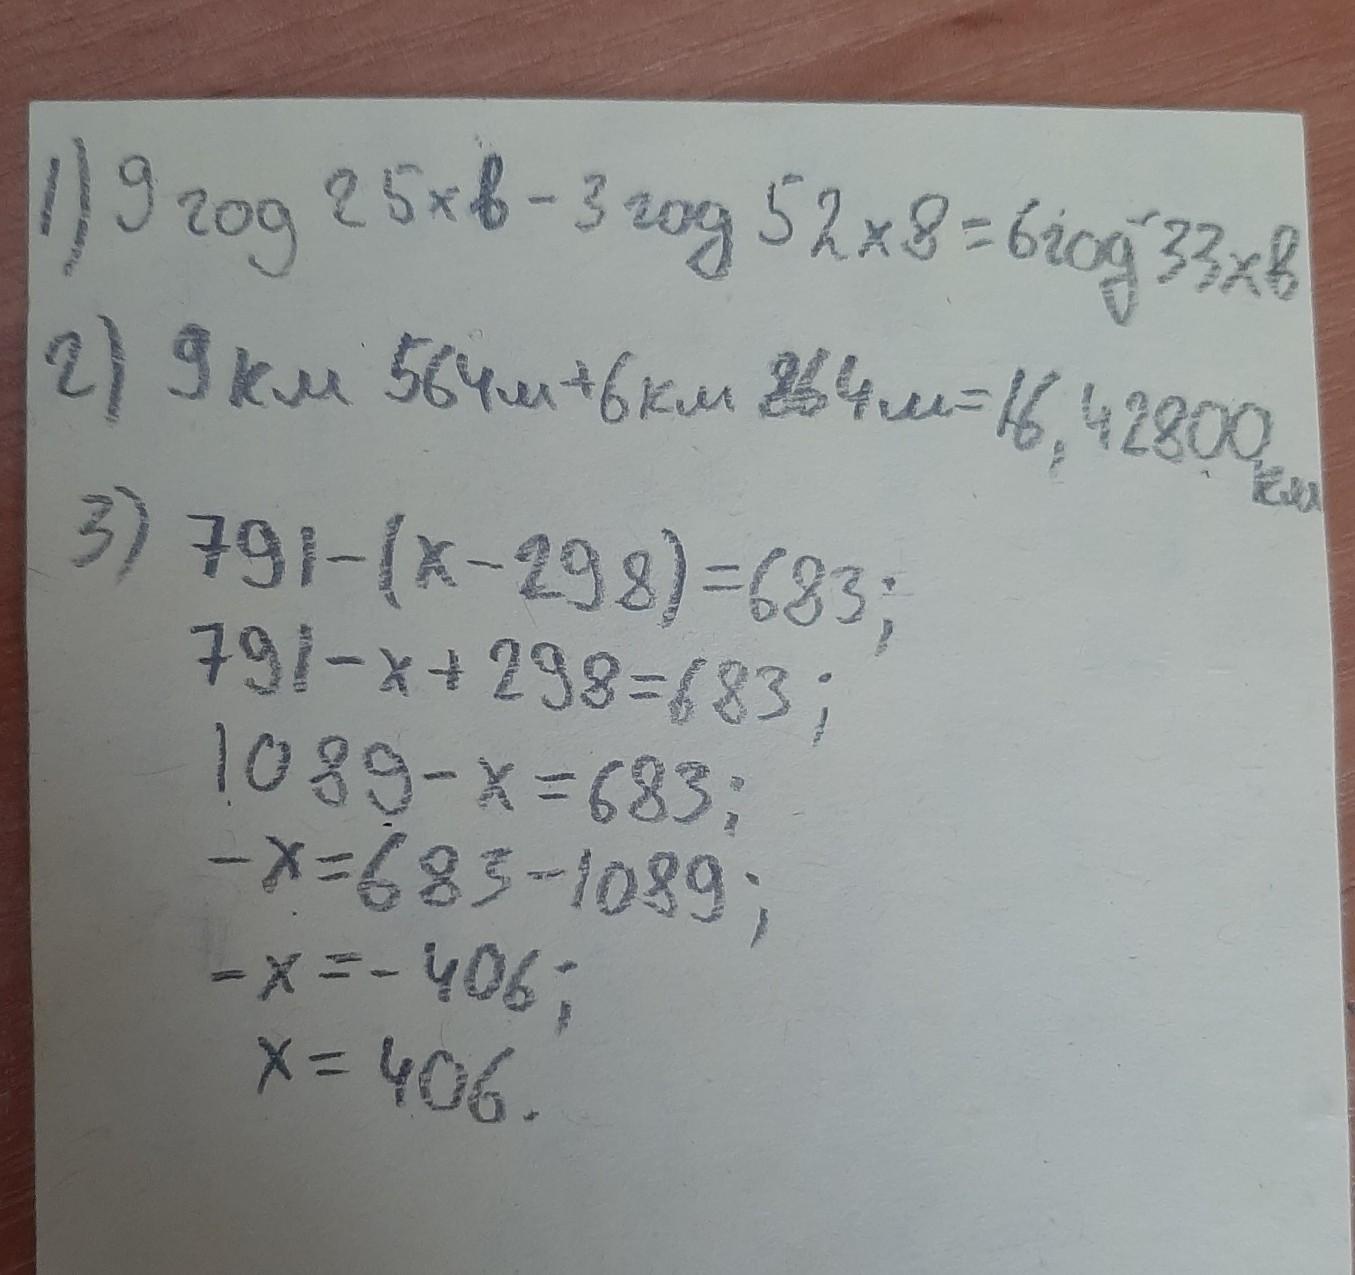 1) 9 год 25 хв - 3 год 52 хв = 6 год 33 хв
2) 9 км 564 м + 6 км 864 м = 16,42800 км
3) 791 - (x - 298) = 683;
791 - x + 298 = 683;
1089 - x = 683;
- x = 683 - 1089;
- x = - 406;
x = 406.